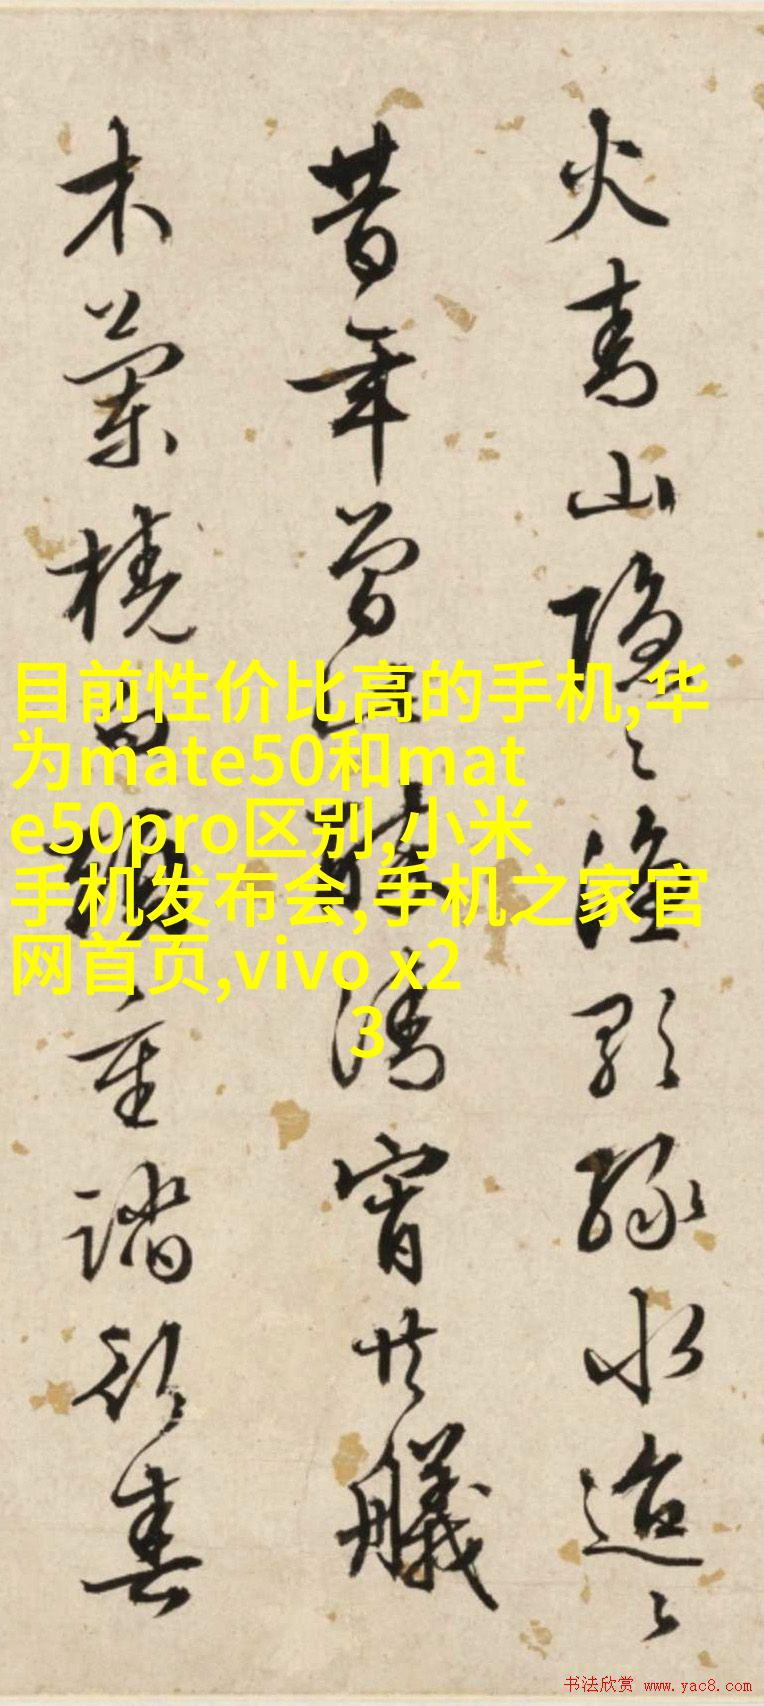 火青山隱〻綠水迢〻
昔年曾清宵共艤
木蘭橈白重踏行春
目前性价比高的手机,华
为mate50和mat
e50pro区别,小米
手机发布会,手机之家官
网首页,vivo x2
3
书法欣赏 www.yac8.com